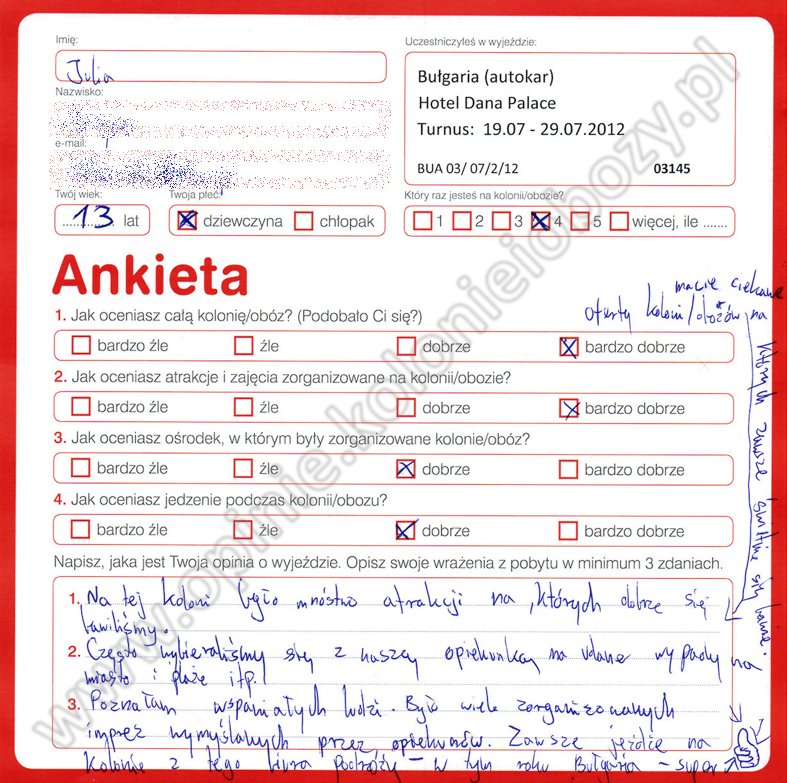 Imię:
Julia
Nazwisko:
e-mail:
Uczestniczyłeś w wyjeździe:
Bułgaria (autokar)
Hotel Dana Palace
Turnus: 19.07 - 29.07.2012
BUA 03/ 07/2/12 03145
Twój wiek:
13 lat
Twoja płeć:
dziewczyna chłopak
Który raz jesteś na kolonii/obozie?
1 2 3 4 5 więcej, ile .......
Ankieta
macie ciekawe
oferty koloni/obozów na
których zawsze świetnie się bawię.
1. Jak oceniasz całą kolonię/obóz? (Podobało Ci się?)
bardzo źle źle dobrze bardzo dobrze
2. Jak oceniasz atrakcje i zajęcia zorganizowane na kolonii/obozie?
bardzo źle źle dobrze bardzo dobrze
3. Jak oceniasz ośrodek, w którym były zorganizowane kolonie/obóz?
bardzo źle źle dobrze bardzo dobrze
4. Jak oceniasz jedzenie podczas kolonii/obozu?
bardzo źle źle dobrze bardzo dobrze
Napisz, jaka jest Twoja opinia o wyjeździe. Opisz swoje wrażenia z pobytu w minimum 3 zdaniach.
1. Na tej koloni było mnóstwo atrakcji na których dobrze się
bawiliśmy.
2. Często wybieraliśmy się z naszą opiekunką na udane wypady na
miasto i plażę itp.
3. Poznałam wspaniałych ludzi. Było wiele zorganizowanych
imprez wymyślanych przez opiekunów. Zawsze jeżdżę na
kolonie z tego biura podróży - w tym roku Bułgaria - super
www.opinie.kolonieiobozy.pl